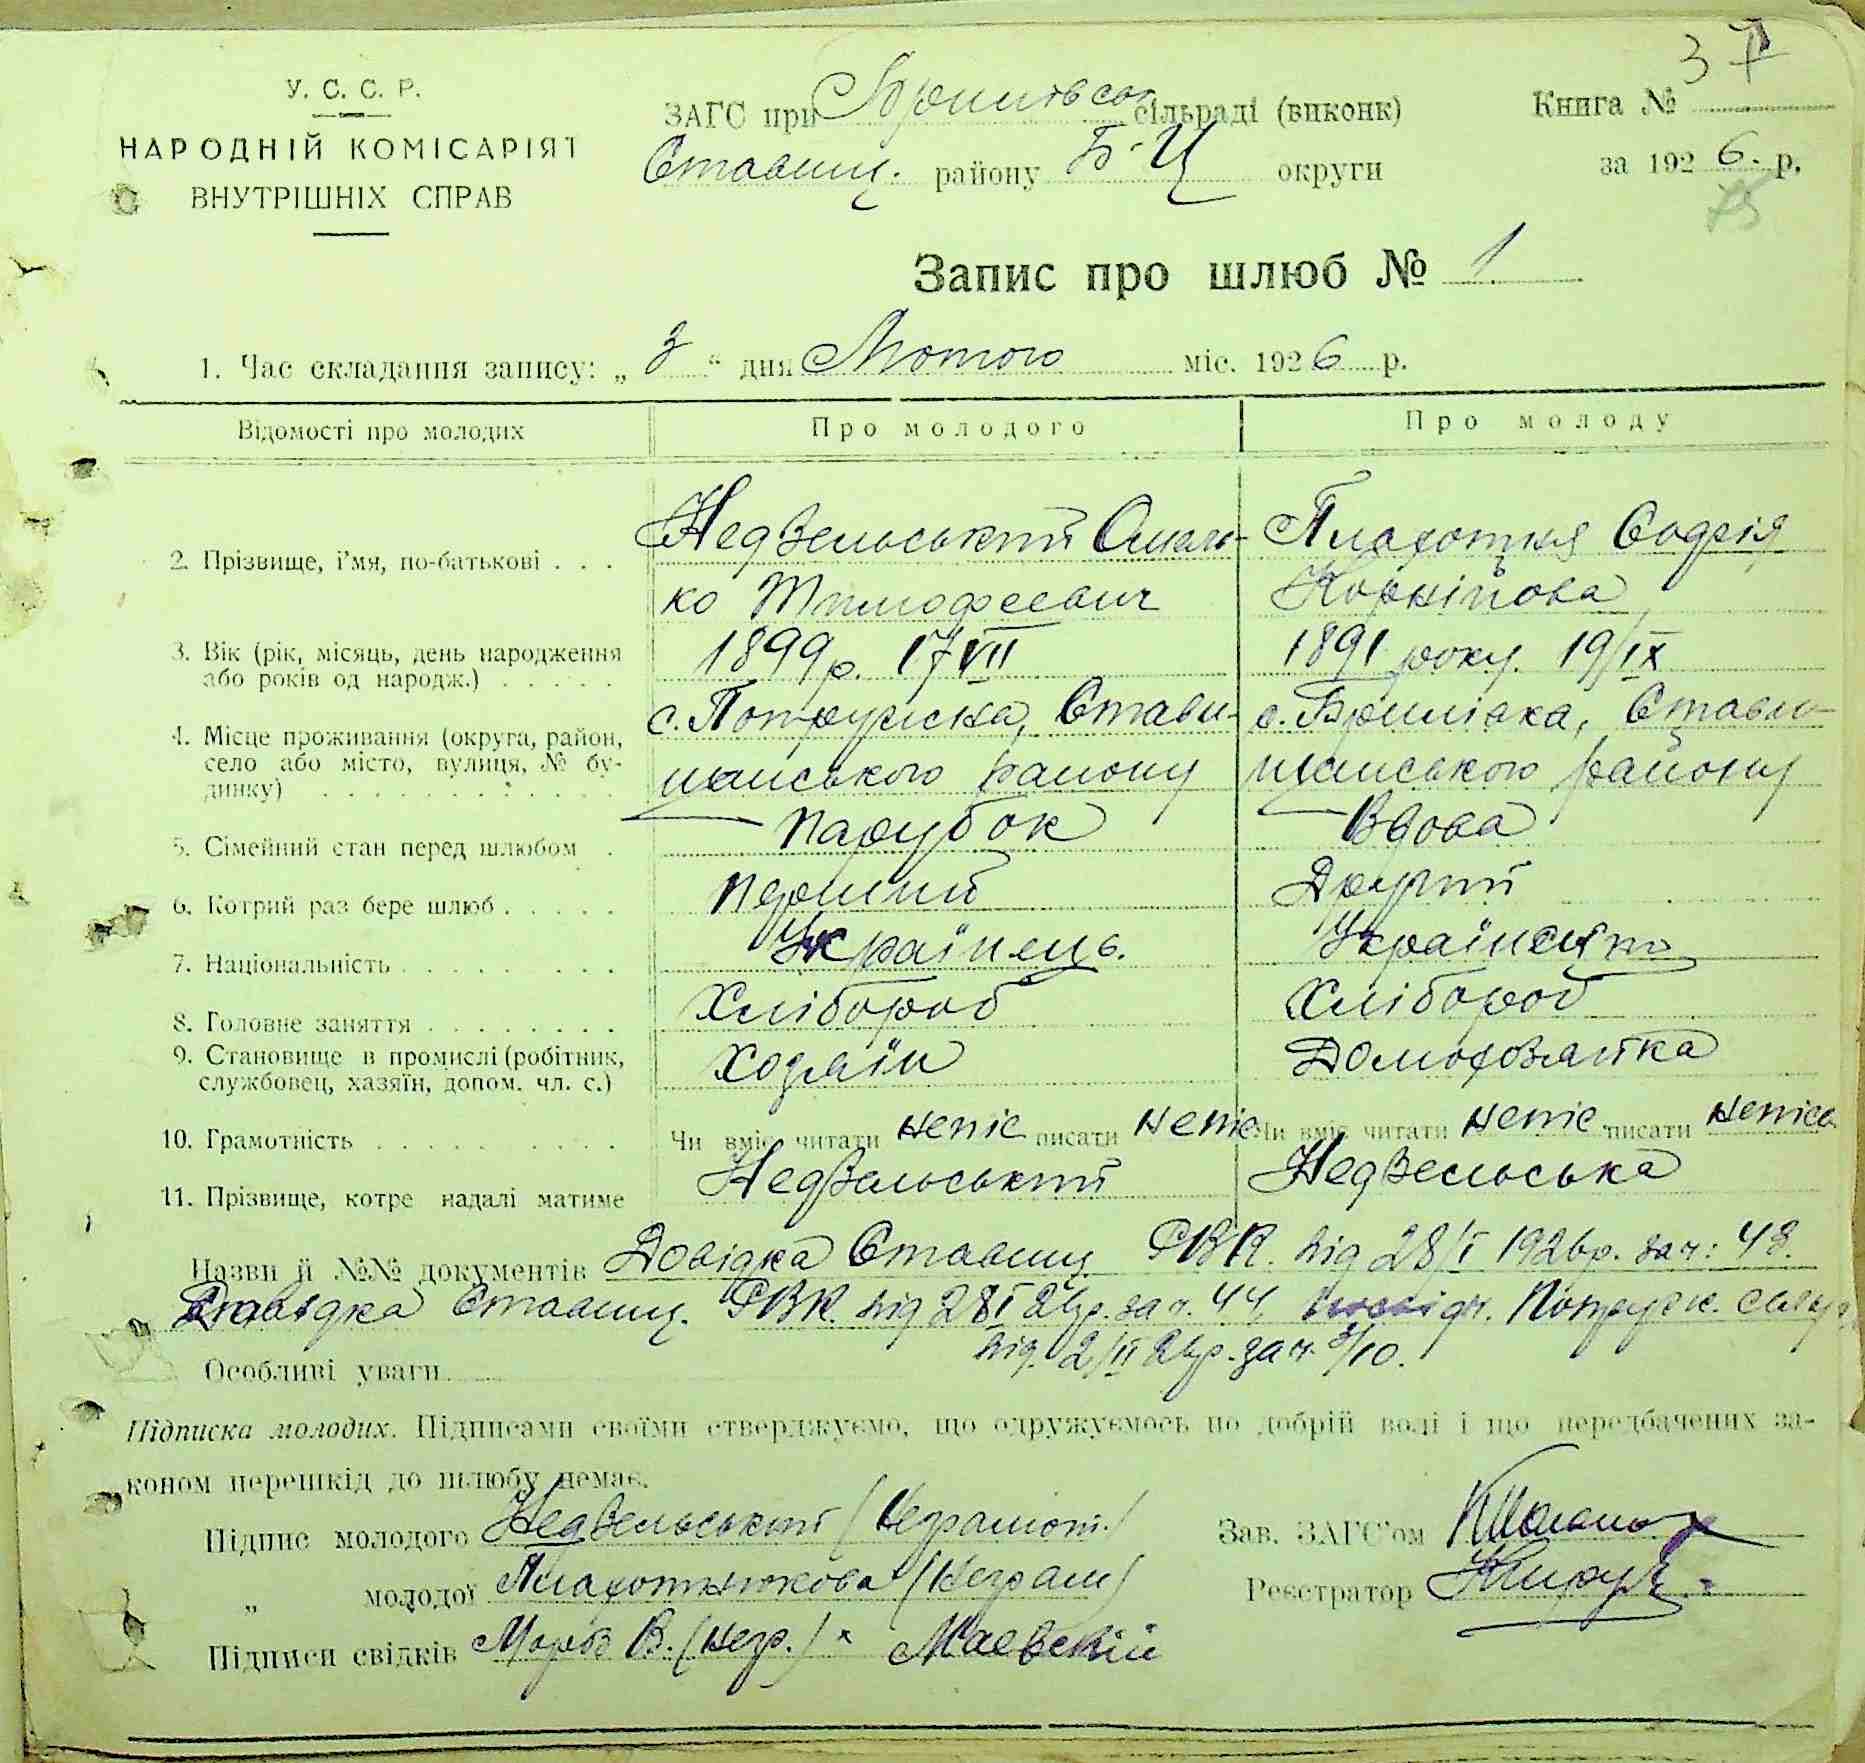 37
У. С. С. Р.
НАРОДНІЙ КОМІСАРІЯТ
ВНУТРІШНІХ СПРАВ
ЗАГС при сільраді (виконк)
Ставищ. району Б-Ц округи
Книга №
за 1926. р.
75
Запис про шлюб № 1
1. Час складання запису: „3“ дня Лютого міс. 1926 р.
Відомості про молодих Про молодого Про молоду
2. Прізвище, і'мя, по-батькові . . . Недзельський Омель- Плахотня Софія
ко Тимофеевич Корніїова
3. Вік (рік, місяць, день народження 1899 р. 17 VII 1891 року. 19/IX
або років од народж.) . . . . .
4. Місце проживання (округа, район, с. Потружска, Стави- с. Брилівка, Стави-
село або місто, вулиця, № бу- щанського району щанського району
динку) . . . . . . . . . . .
5. Сімейний стан перед шлюбом . Парубок Вдова
6. Котрий раз бере шлюб . . . . . Перший Другий
7. Національність . . . . . . . . Українець. Українець
8. Головне заняття . . . . . . . . Хлібороб Хлібороб
9. Становище в промислі (робітник, Хозяїн Домохозяйка
службовец, хазяїн, допом. чл. с.)
10. Грамотність . . . . . . . . Чи вміє читати непіс писати непіс Чи вміє читати непіс писати неписа
11. Прізвище, котре надалі матиме Недзельський Недзельська
Назви й №№ документів Довідка Ставищ РВК. від 28/I 1926 р. за ч: 43.
Довідка Ставищ. РВК. від 28 I 26 р. за ч. 44. Потружс.
від. 2/II 26 р. за ч. 3/10.
Особливі уваги
Підписка молодих. Підписами своїми стверджуємо, що одружуємось по добрій волі і що передбачених за-
коном перешкід до шлюбу немає.
Підпис молодого Недзельський (Неграмот.) Зав. ЗАГС'ом
„ молодої Плахотнюкова (Неграм) Реєстратор
Підписи свідків В. (негр.) х Маевскій